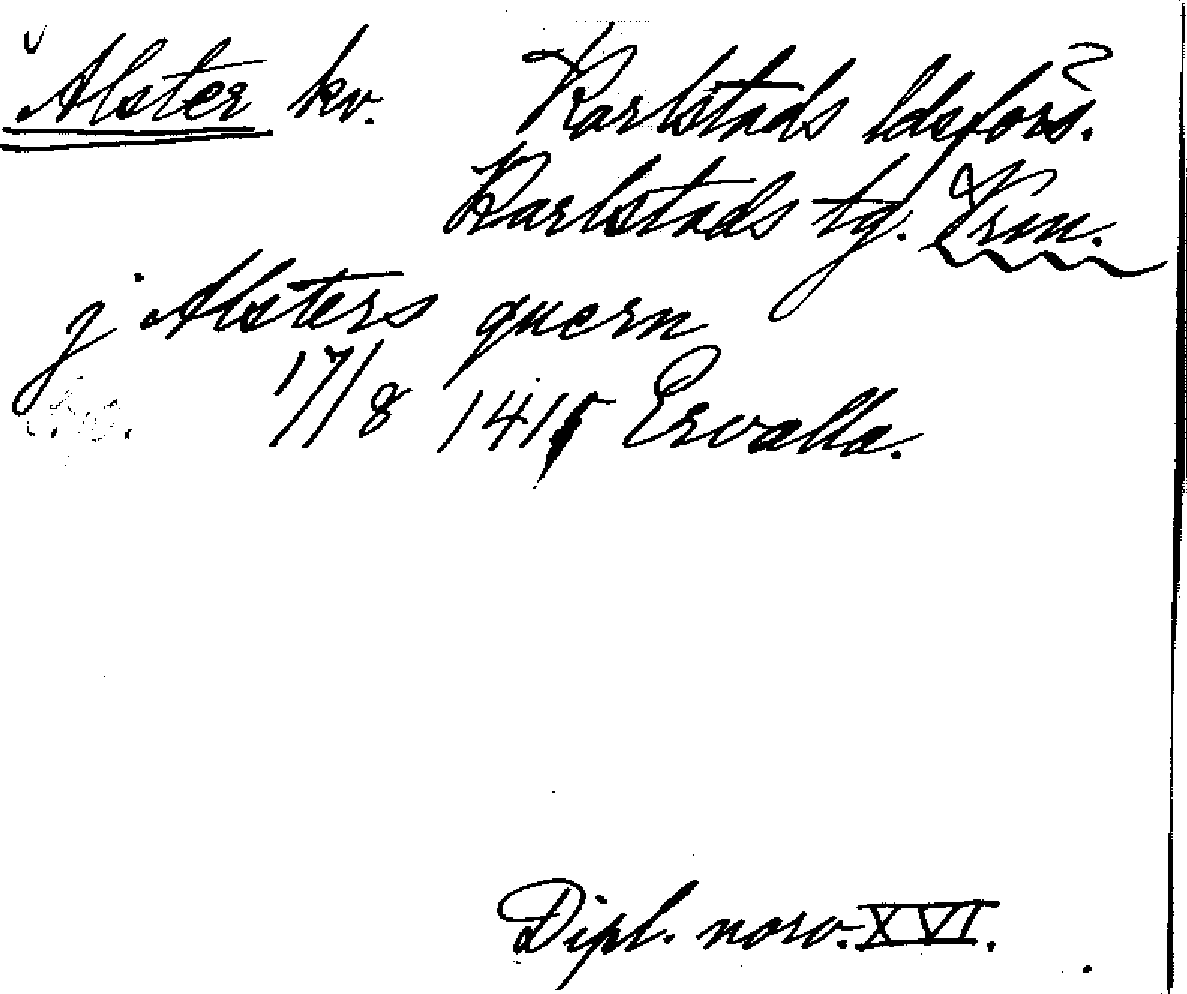 Alster kv. Karlstads ldsförs.
Karlstads tg. Vrm.
j Alsters quern
17/8 1415 Ervalla.
Dipl. norv. XVI.